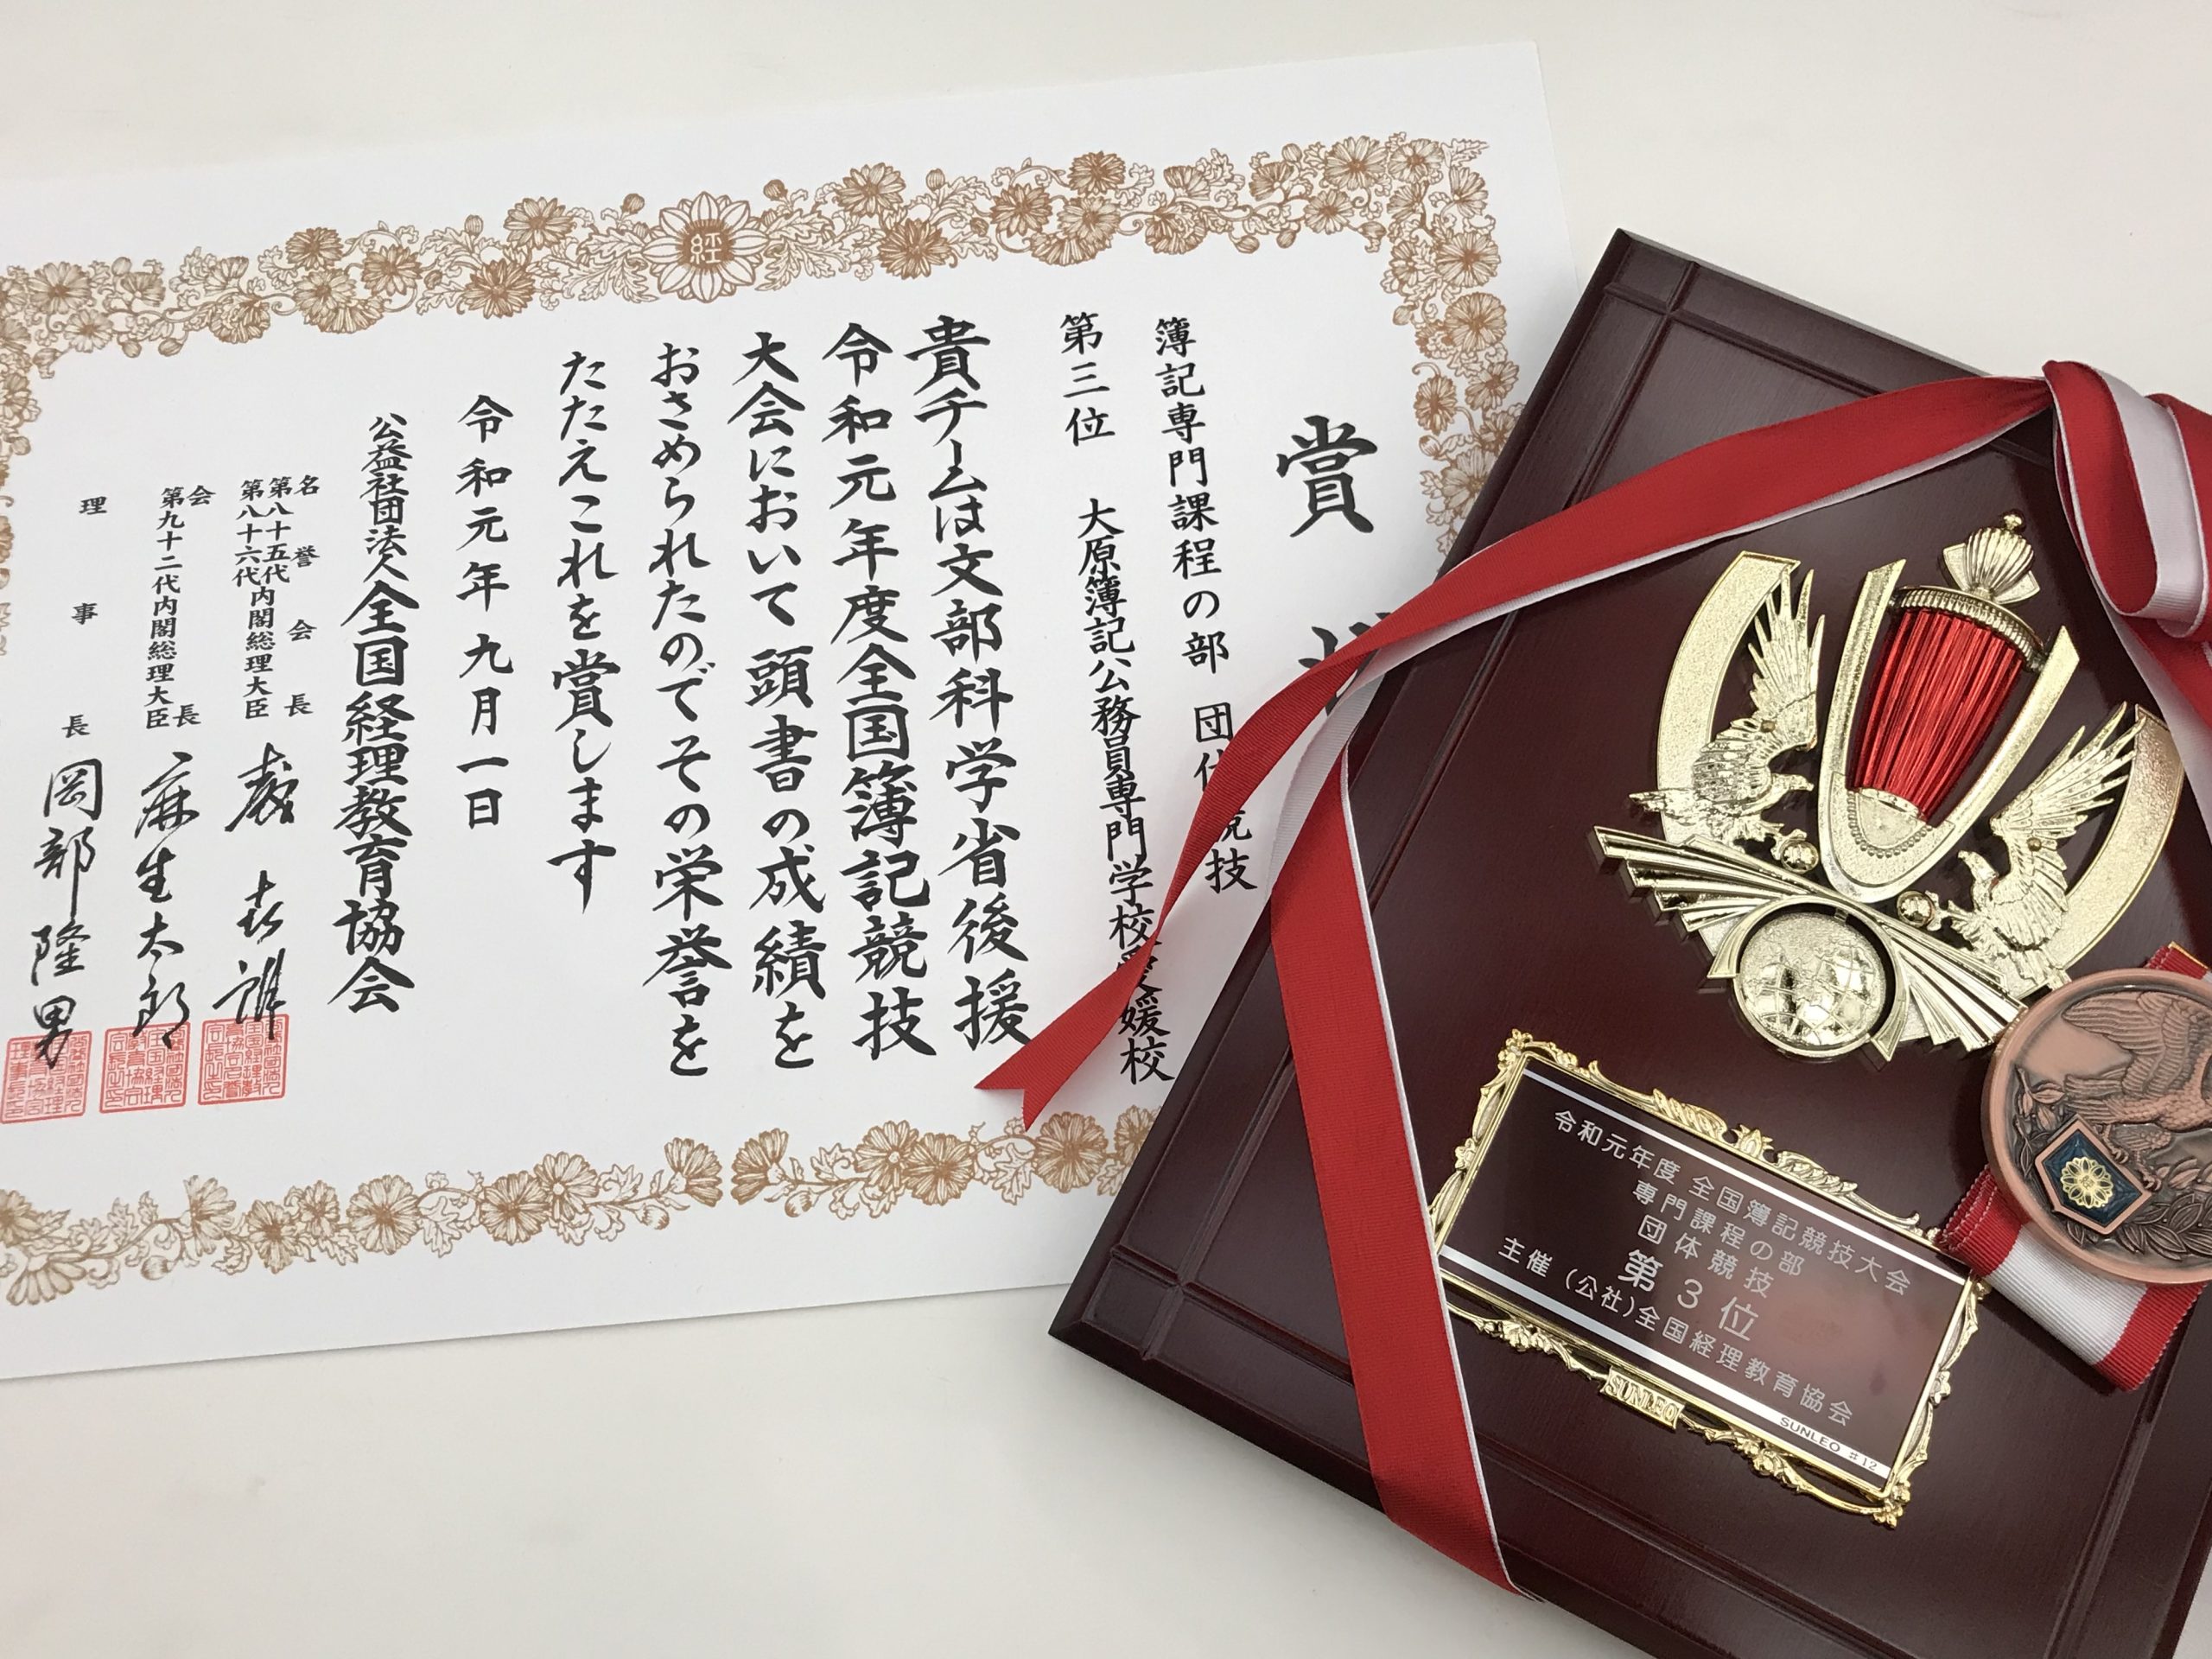 経
賞
簿記専門課程の部 団体競技
第三位 大原簿記公務員専門学校愛媛校
貴チームは文部科学省後援
令和元年度全国簿記競技
大会において頭書の成績を
おさめられたのでその栄誉を
たたえこれを賞します
令和元年九月一日
公益社団法人全国経理教育協会
名誉会長
第八十五代
第八十六代
内閣総理大臣
森喜朗
会長
第九十二代内閣総理大臣
麻生太郎
理事長
岡部隆男
令和元年度 全国簿記競技大会
専門課程の部
団体競技
第3位
主催 (公社)全国経理教育協会
SUNLEO
SUNLEO #12